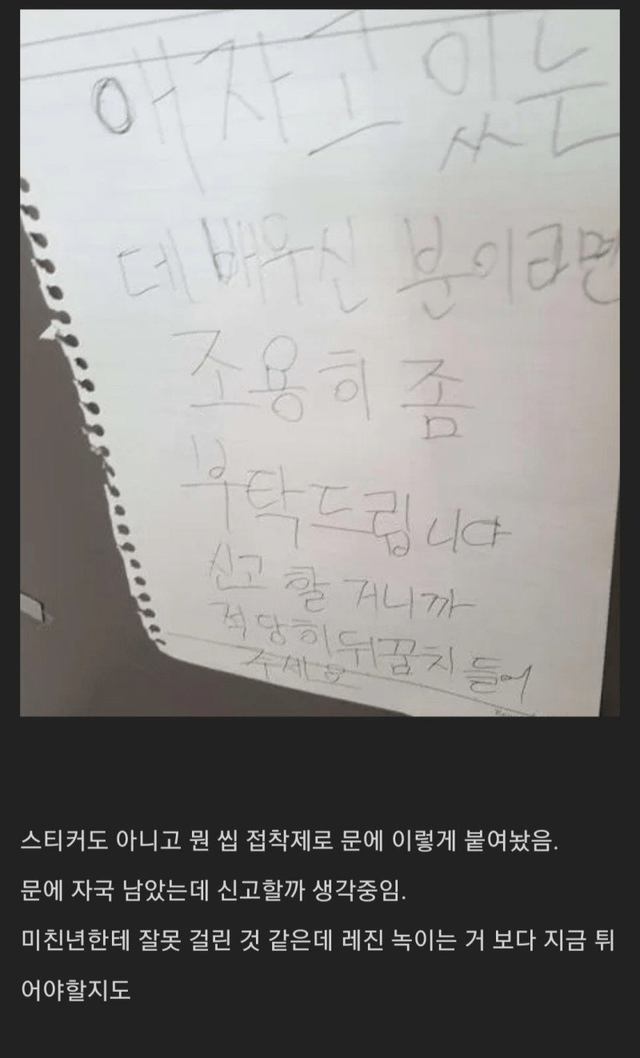 애 자고 있는
데 배우신 분이라면
조용히 좀
부탁드립니다
신고 할 거니까
적당히 뒤꿈치 들어
주세요
스티커도 아니고 뭔 씹 접착제로 문에 이렇게 붙여놨음.
문에 자국 남았는데 신고할까 생각중임.
미친년한테 잘못 걸린 것 같은데 레진 녹이는 거 보다 지금 튀
어야할지도